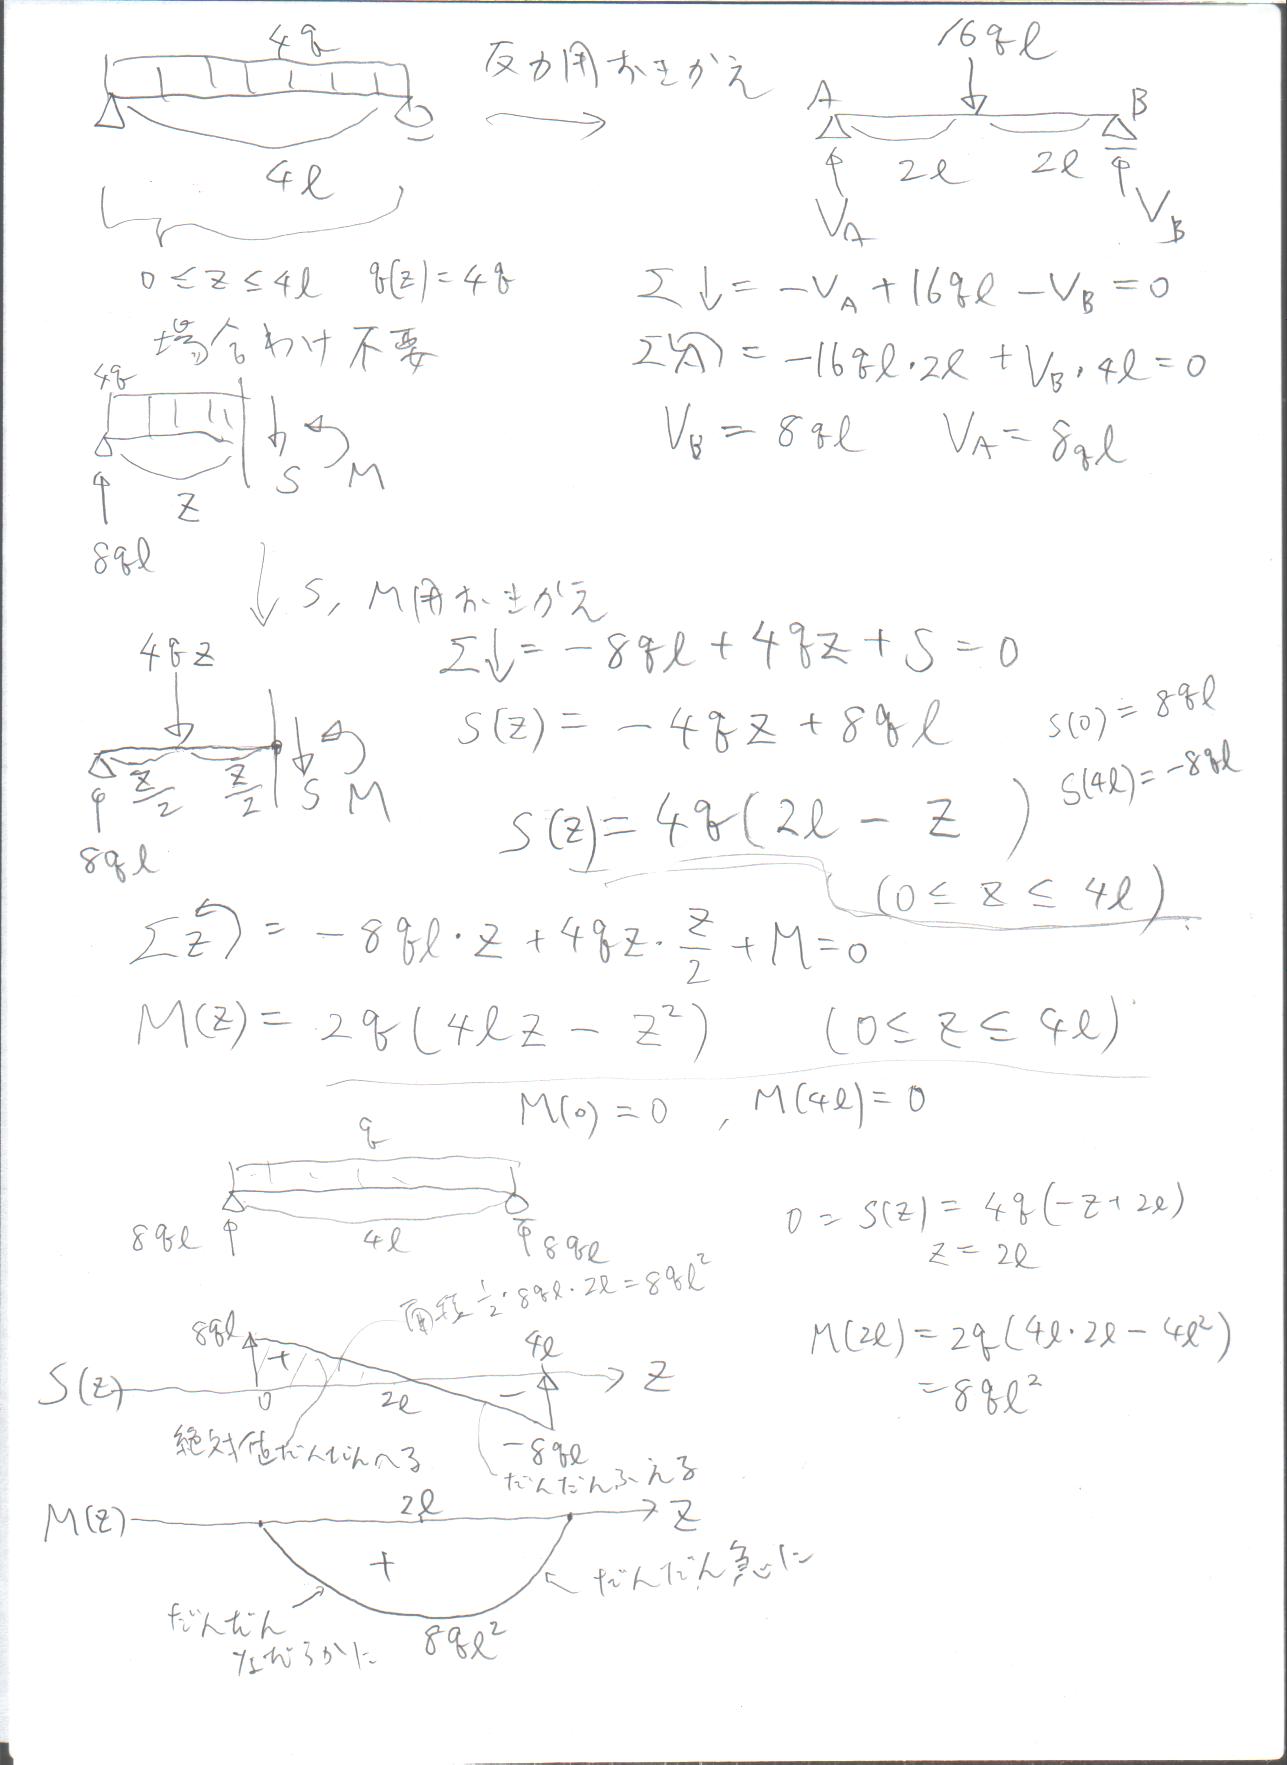 4q
反力用おきかえ
16ql
A
B
4l
2l
2l
V_A
V_B
0≤z≤4l q(z)=4q
場合わけ不要
Σ↓= -V_A+16ql-V_B=0
ΣA = -16ql・2l+V_B・4l=0
V_B = 8ql V_A= 8ql
4q
S
M
z
8ql
S, M用おきかえ
4qz
z/2
z/2
S
M
8ql
Σ↓= -8ql+4qz+S=0
S(z)= -4qz+8ql
S(0)=8ql
S(4l)=-8ql
S(z)=4q(2l-z)
(0≤z≤4l)
Σz = -8ql・z+4qz・z/2+M=0
M(z)= 2q(4lz-z²) (0≤z≤4l)
M(0)=0 , M(4l)=0
q
8ql
4l
8ql
0=S(z)=4q(-z+2l)
z=2l
M(2l)=2q(4l・2l-4l²)
=8ql²
面積 1/2・8ql・2l=8ql²
8ql
+
4l
S(z)
0
2l
-
z
-8ql
絶対値だんだんへる
だんだんふえる
M(z)
2l
z
+
だんだん急に
だんだん
なだらかに
8ql²